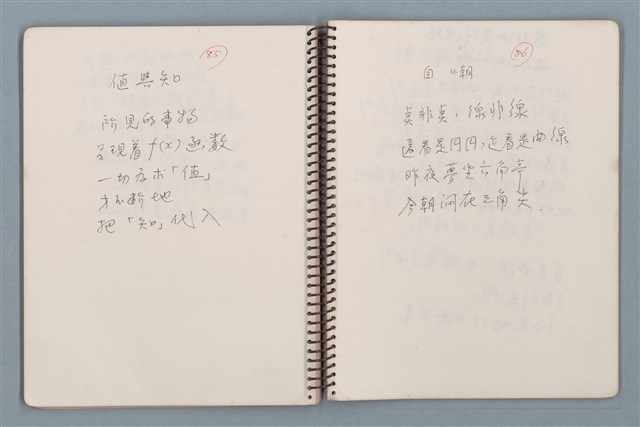 85
值與知
所見的事物
呈現着f(x)函數
一切为求「值」
才不斷地
把「知」代入
86
自嘲
莫非莫，線非線
遠看是円円，近看是曲線
昨夜夢坐六角亭
今朝泂在三角尖